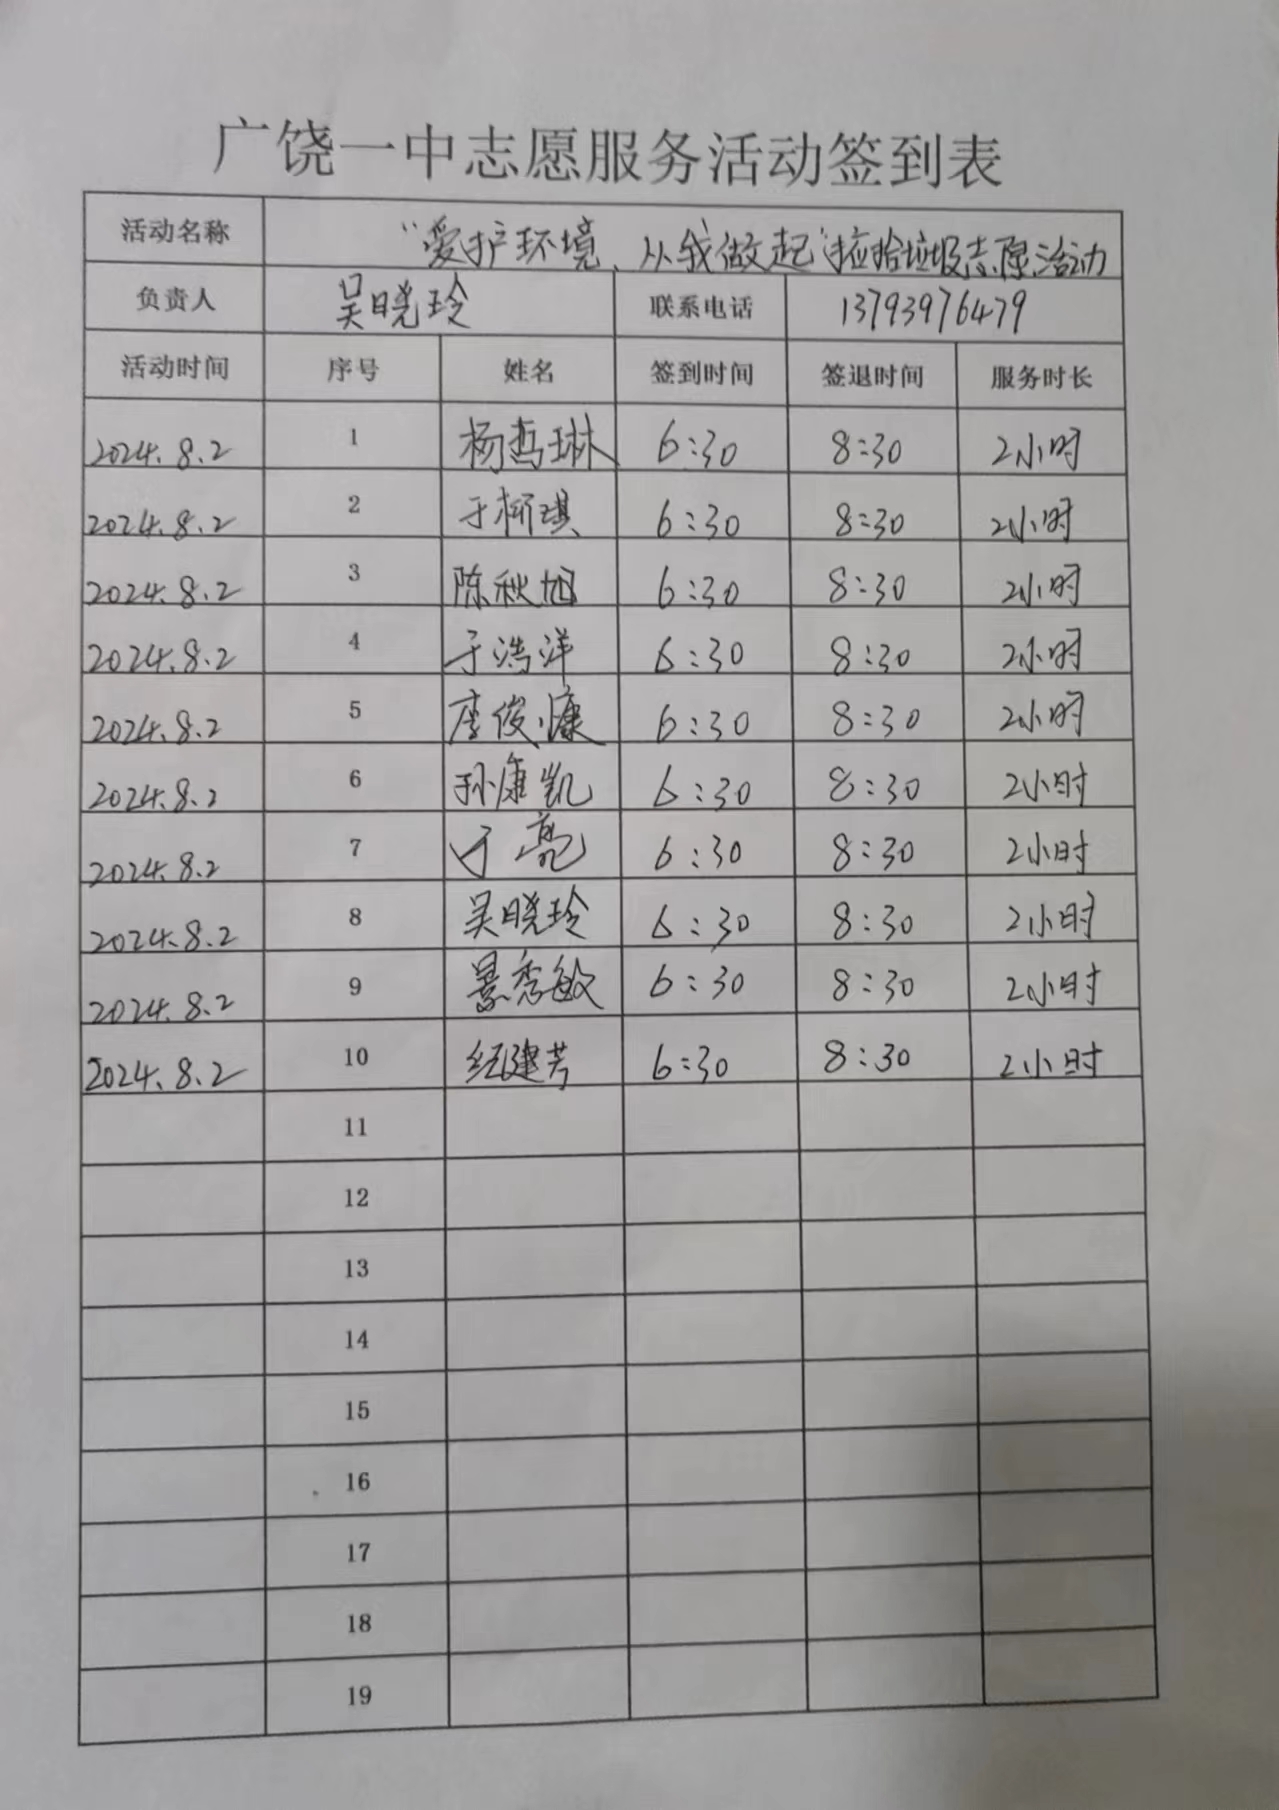 广饶一中志愿服务活动签到表
活动名称 “爱护环境、从我做起”捡拾垃圾志愿活动
负责人 吴晓玲 联系电话 13793976479
活动时间 序号 姓名 签到时间 签退时间 服务时长
2024.8.2 1 杨哲琳 6:30 8:30 2小时
2024.8.2 2 于柳琪 6:30 8:30 2小时
2024.8.2 3 陈秋旭 6:30 8:30 2小时
2024.8.2 4 于浩洋 6:30 8:30 2小时
2024.8.2 5 李俊慷 6:30 8:30 2小时
2024.8.2 6 孙康凯 6:30 8:30 2小时
2024.8.2 7 于亮 6:30 8:30 2小时
2024.8.2 8 吴晓玲 6:30 8:30 2小时
2024.8.2 9 景秀敏 6:30 8:30 2小时
2024.8.2 10 纪建芳 6:30 8:30 2小时
11
12
13
14
15
16
17
18
19